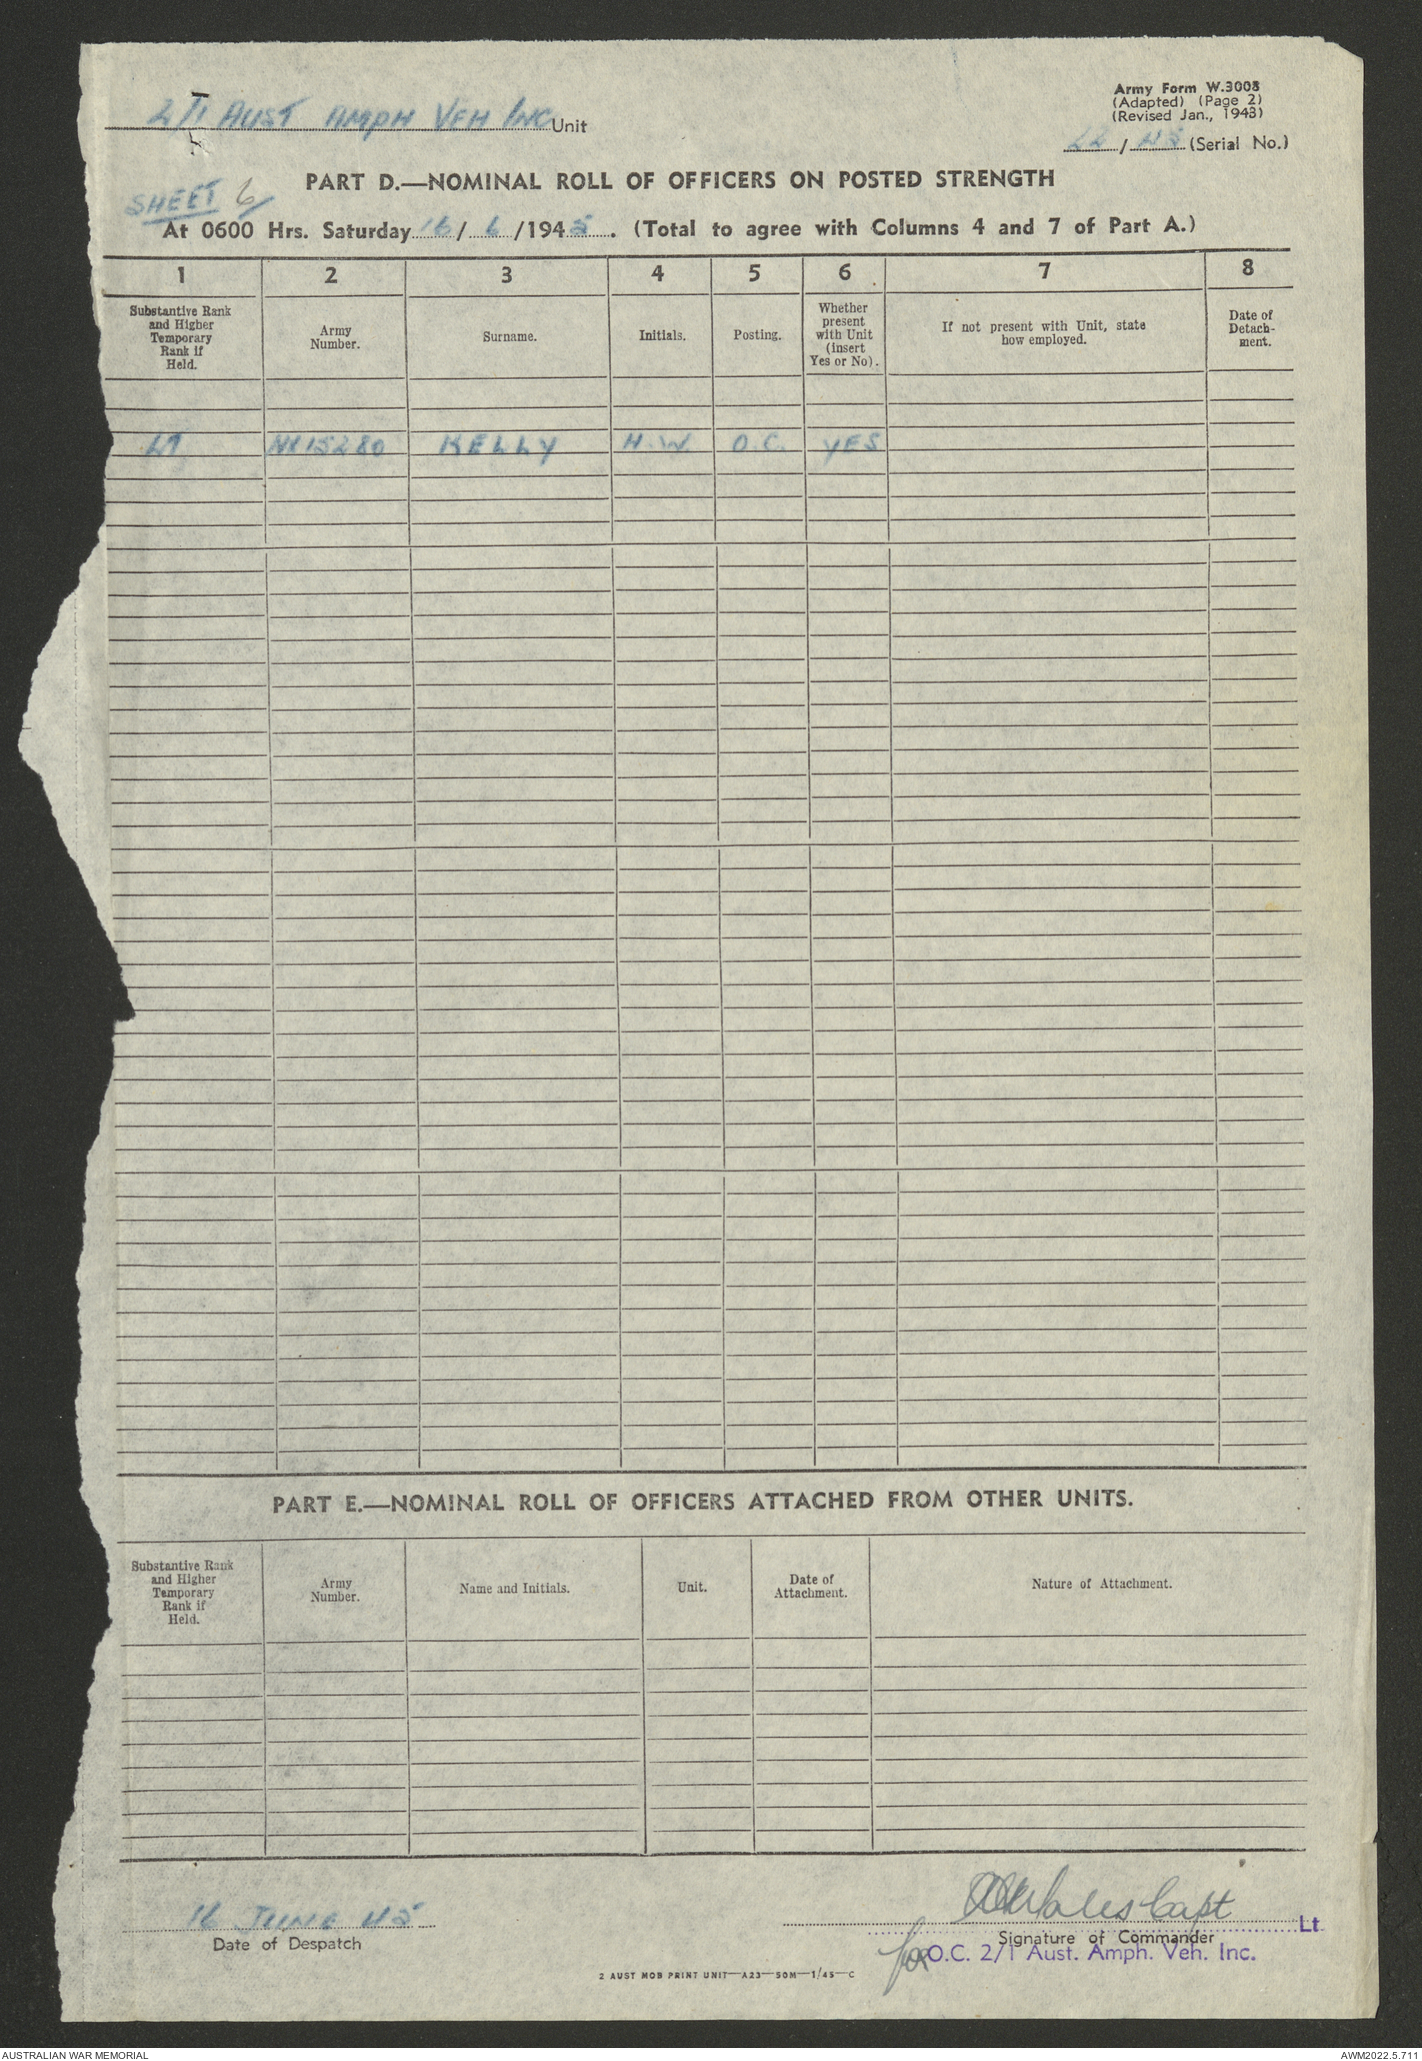 2/1 AUST AMPH VEH INC Unit
Army Form W.3008
(Adapted) (Page 2)
(Revised Jan., 1943)
22/45 (Serial No.)
SHEET 6
PART D.—NOMINAL ROLL OF OFFICERS ON POSTED STRENGTH
At 0600 Hrs. Saturday 16/6/1945. (Total to agree with Columns 4 and 7 of Part A.)
1 2 3 4 5 6 7 8
Substantive Rank
and Higher
Temporary
Rank if
Held.
Army
Number.
Surname.
Initials.
Posting.
Whether
present
with Unit
(insert
Yes or No).
If not present with Unit, state
how employed.
Date of
Detach-
ment.
LT NX15280 KELLY H.W. O.C. YES
PART E.—NOMINAL ROLL OF OFFICERS ATTACHED FROM OTHER UNITS.
Substantive Rank
and Higher
Temporary
Rank if
Held.
Army
Number.
Name and Initials.
Unit.
Date of
Attachment.
Nature of Attachment.
16 JUNE 45
Date of Despatch
Capt
Lt
Signature of Commander
for O.C. 2/1 Aust. Amph. Veh. Inc.
2 AUST MOB PRINT UNIT—A23—50M—1/45—C
AUSTRALIAN WAR MEMORIAL
AWM2022.5.711